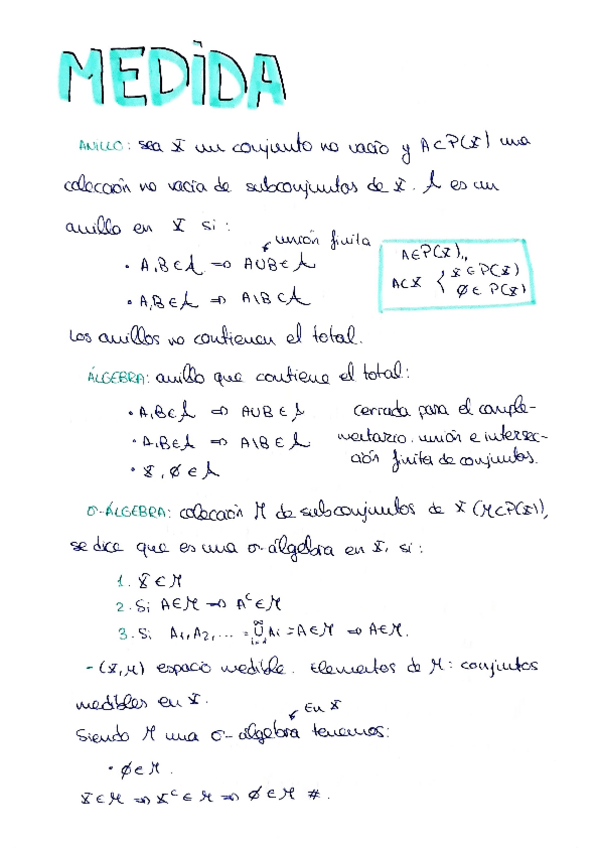 MEDIDA
ANILLO: sea X un conjunto no vacío y A⊂P(X) una
colección no vacía de subconjuntos de X. A es un
anillo en X si:
unión finita
• A,B∈A ⇒ A∪B∈A
• A,B∈A ⇒ A\B⊂A
A∈P(X),,
A⊂X { X∈P(X)
∅∈P(X)
Los anillos no contienen el total.
ÁLGEBRA: anillo que contiene el total:
• A,B∈A ⇒ A∪B∈A
• A,B∈A ⇒ A\B∈A
• X,∅∈A
cerrada para el comple-
mentario, unión e intersec-
ción finita de conjuntos.
σ-ÁLGEBRA: colección M de subconjuntos de X (M⊂P(X)),
se dice que es una σ-álgebra en X, si:
1. X∈M
2. Si A∈M ⇒ Aᶜ∈M
3. Si A₁,A₂,... = ∞∪i=1 Ai = A∈M ⇒ A∈M.
- (X,M) espacio medible. Elementos de M: conjuntos
medibles en X.
En X
Siendo M una σ-álgebra tenemos:
• ∅∈M.
X∈M ⇒ Xᶜ∈M ⇒ ∅∈M #.